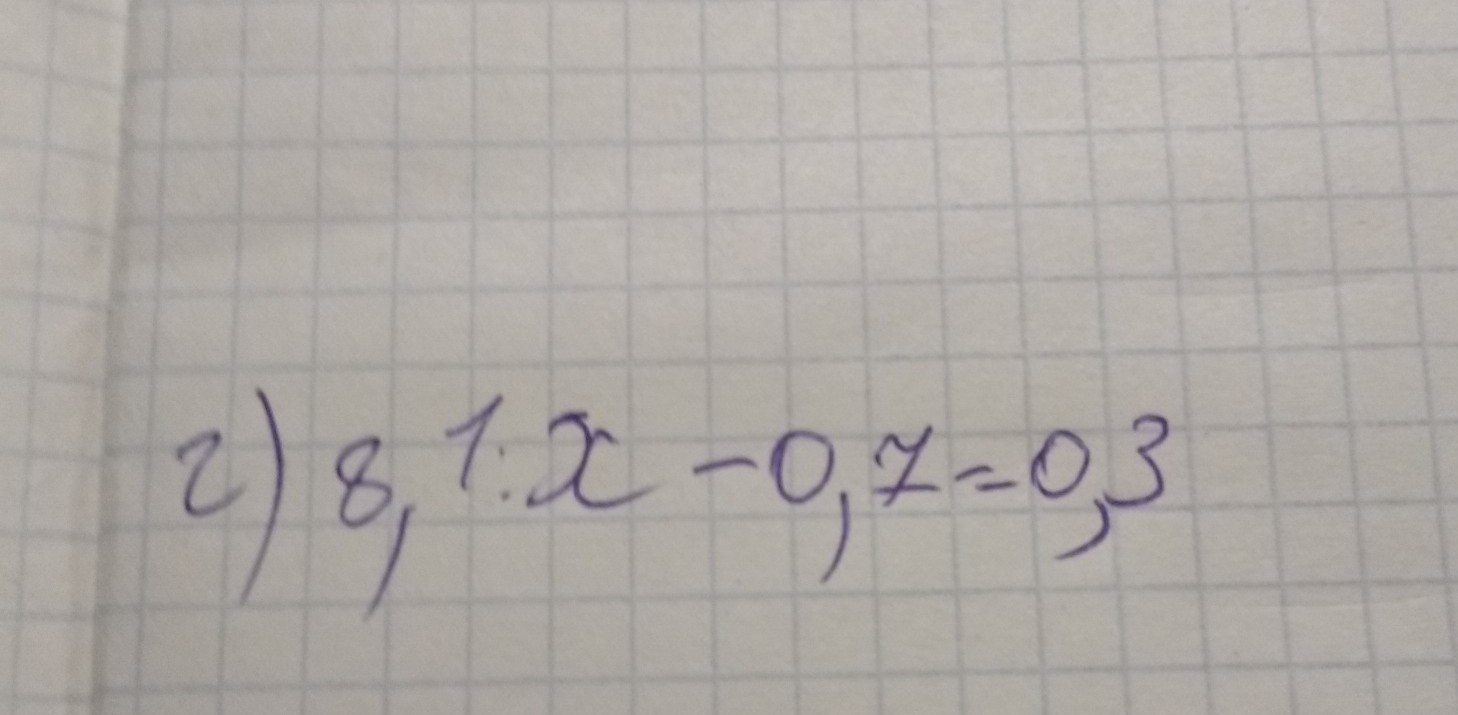 г) 8,1:x-0,7=0,3